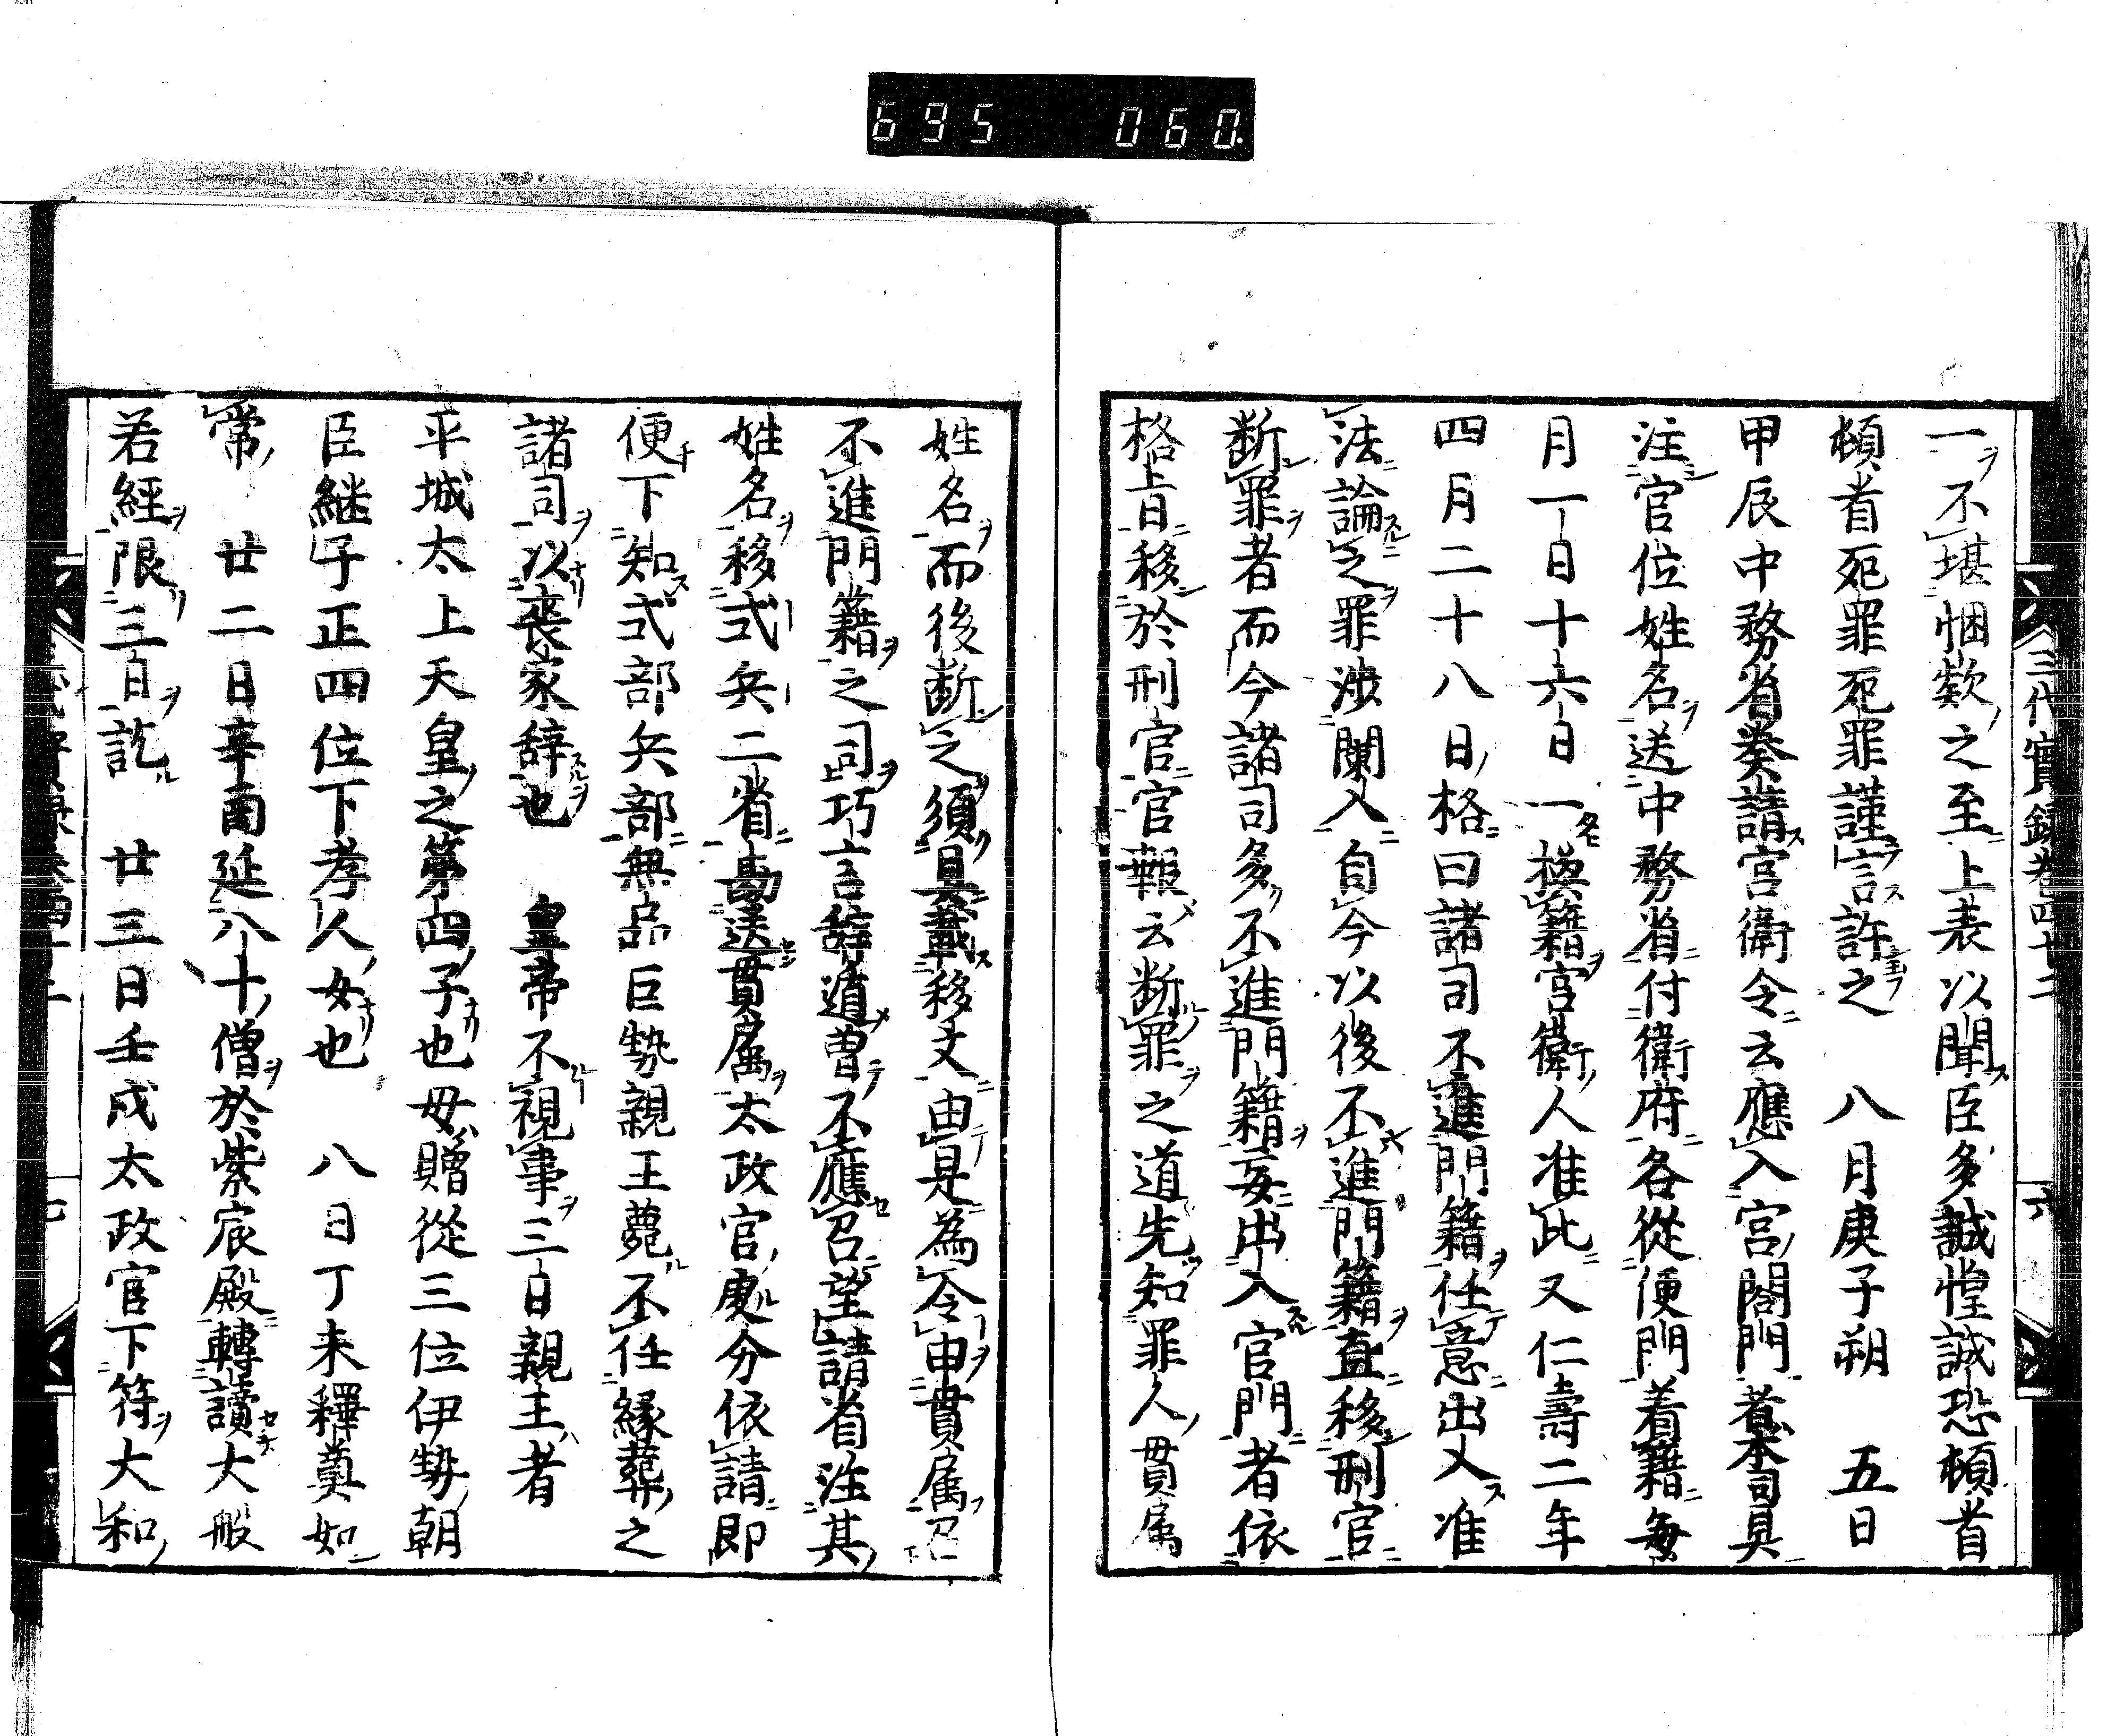 695 060
三代實録卷四十二
六
一不堪悃欵之至上表以聞臣多誠惶誠恐頓首
頓首死罪死罪謹言許之　八月庚子朔　五日
甲辰中務省奏請宮衛令云應入宮閤門者本司具
注官位姓名送中務省付衛府各從便門着籍毎
月一日十六日一換籍宮衛人准此又仁壽二年
四月二十八日格曰諸司不進門籍任意出入准
法論之罪渉闌入自今以後不進門籍直移刑官
断罪者而今諸司多不進門籍妄出入官門者依
格旨移於刑官官報云断罪之道先知罪人貫属
姓名而後断之須具載移文由是為令申貫属
不進門籍之司巧言辞遁曽不應召望請省注其
姓名移式兵二省勘送貫属太政官處分依請即
便下知式部兵部無品巨勢親王薨不任縁葬之
諸司以喪家辞也　皇帝不視事三日親王者
平城太上天皇之第四子也母贈從三位伊勢朝
臣継子正四位下孝人女也　八日丁未釋奠如
常　廿二日辛酉延八十僧於紫宸殿轉讀大般
若經限三日訖　廿三日壬戌太政官下符大和
七